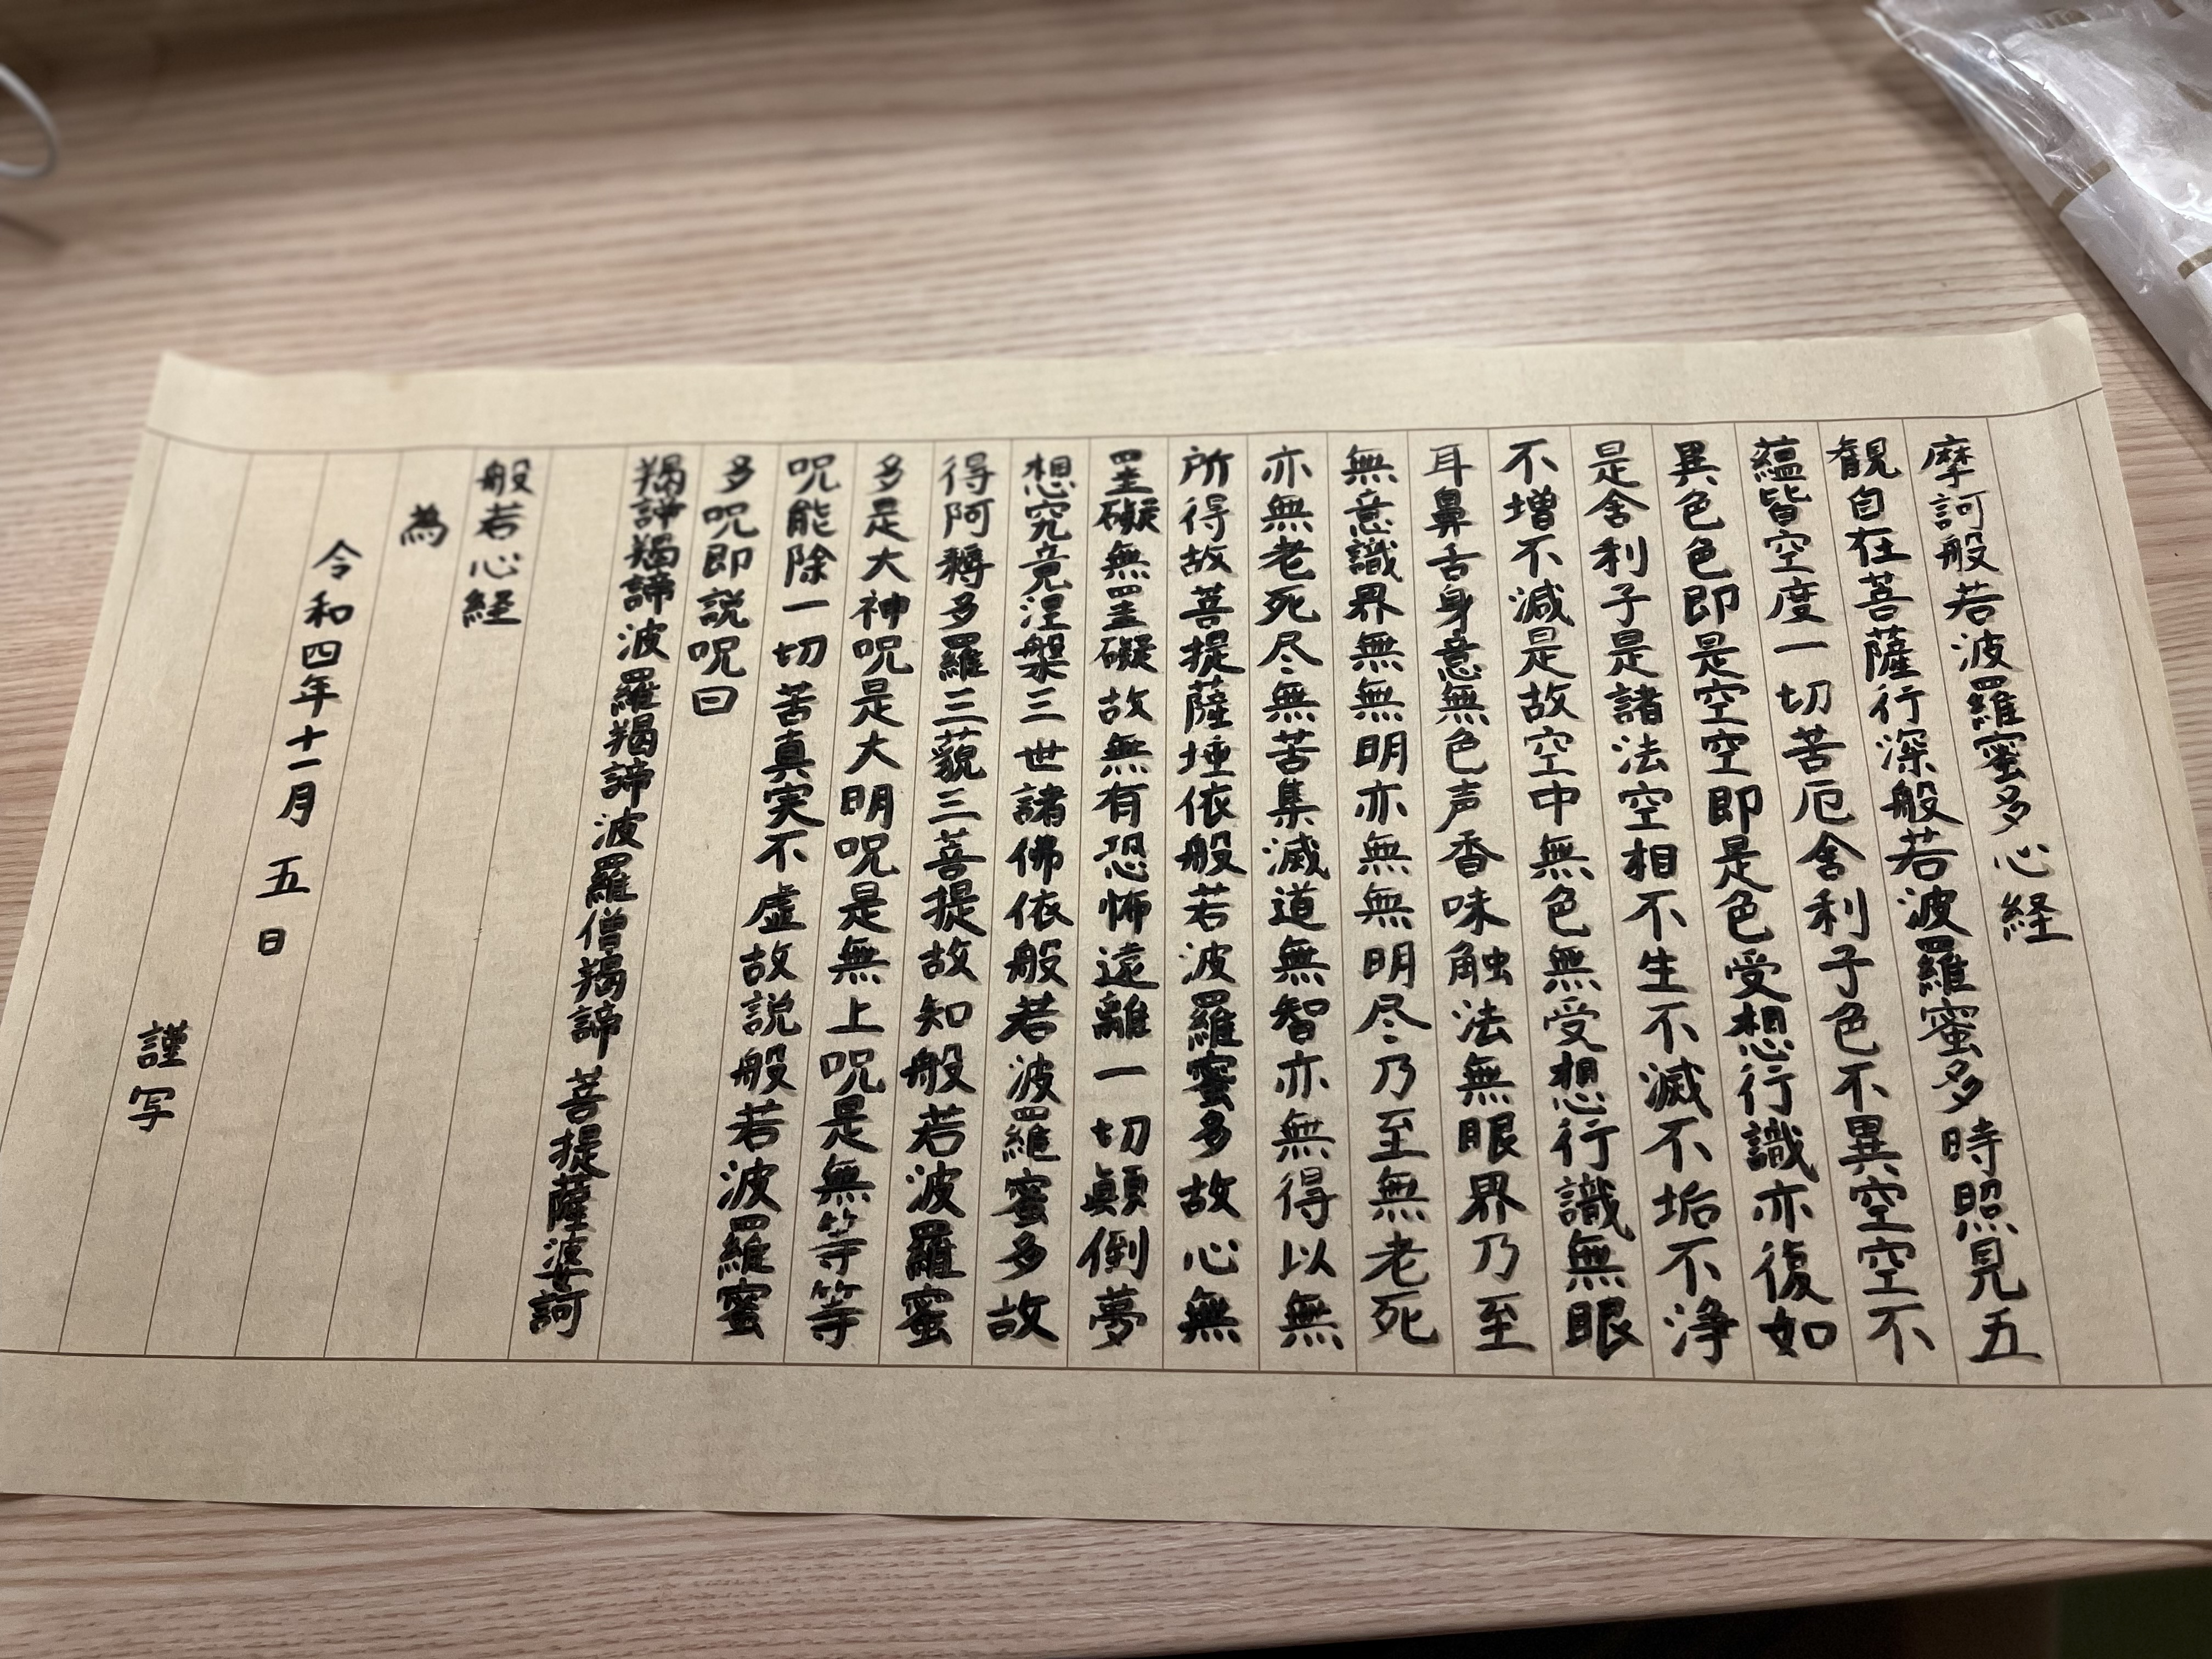 摩訶般若波羅蜜多心経
観自在菩薩行深般若波羅蜜多時照見五
蘊皆空度一切苦厄舎利子色不異空空不
異色色即是空空即是色受想行識亦復如
是舎利子是諸法空相不生不滅不垢不浄
不増不減是故空中無色無受想行識無眼
耳鼻舌身意無色声香味触法無眼界乃至
無意識界無無明亦無無明尽乃至無老死
亦無老死尽無苦集滅道無智亦無得以無
所得故菩提薩埵依般若波羅蜜多故心無
罣礙無罣礙故無有恐怖遠離一切顛倒夢
想究竟涅槃三世諸佛依般若波羅蜜多故
得阿耨多羅三藐三菩提故知般若波羅蜜
多是大神呪是大明呪是無上呪是無等等
呪能除一切苦真実不虚故説般若波羅蜜
多呪即説呪曰
羯諦羯諦波羅羯諦波羅僧羯諦菩提薩婆訶
般若心経
為
令和四年十一月五日
謹写